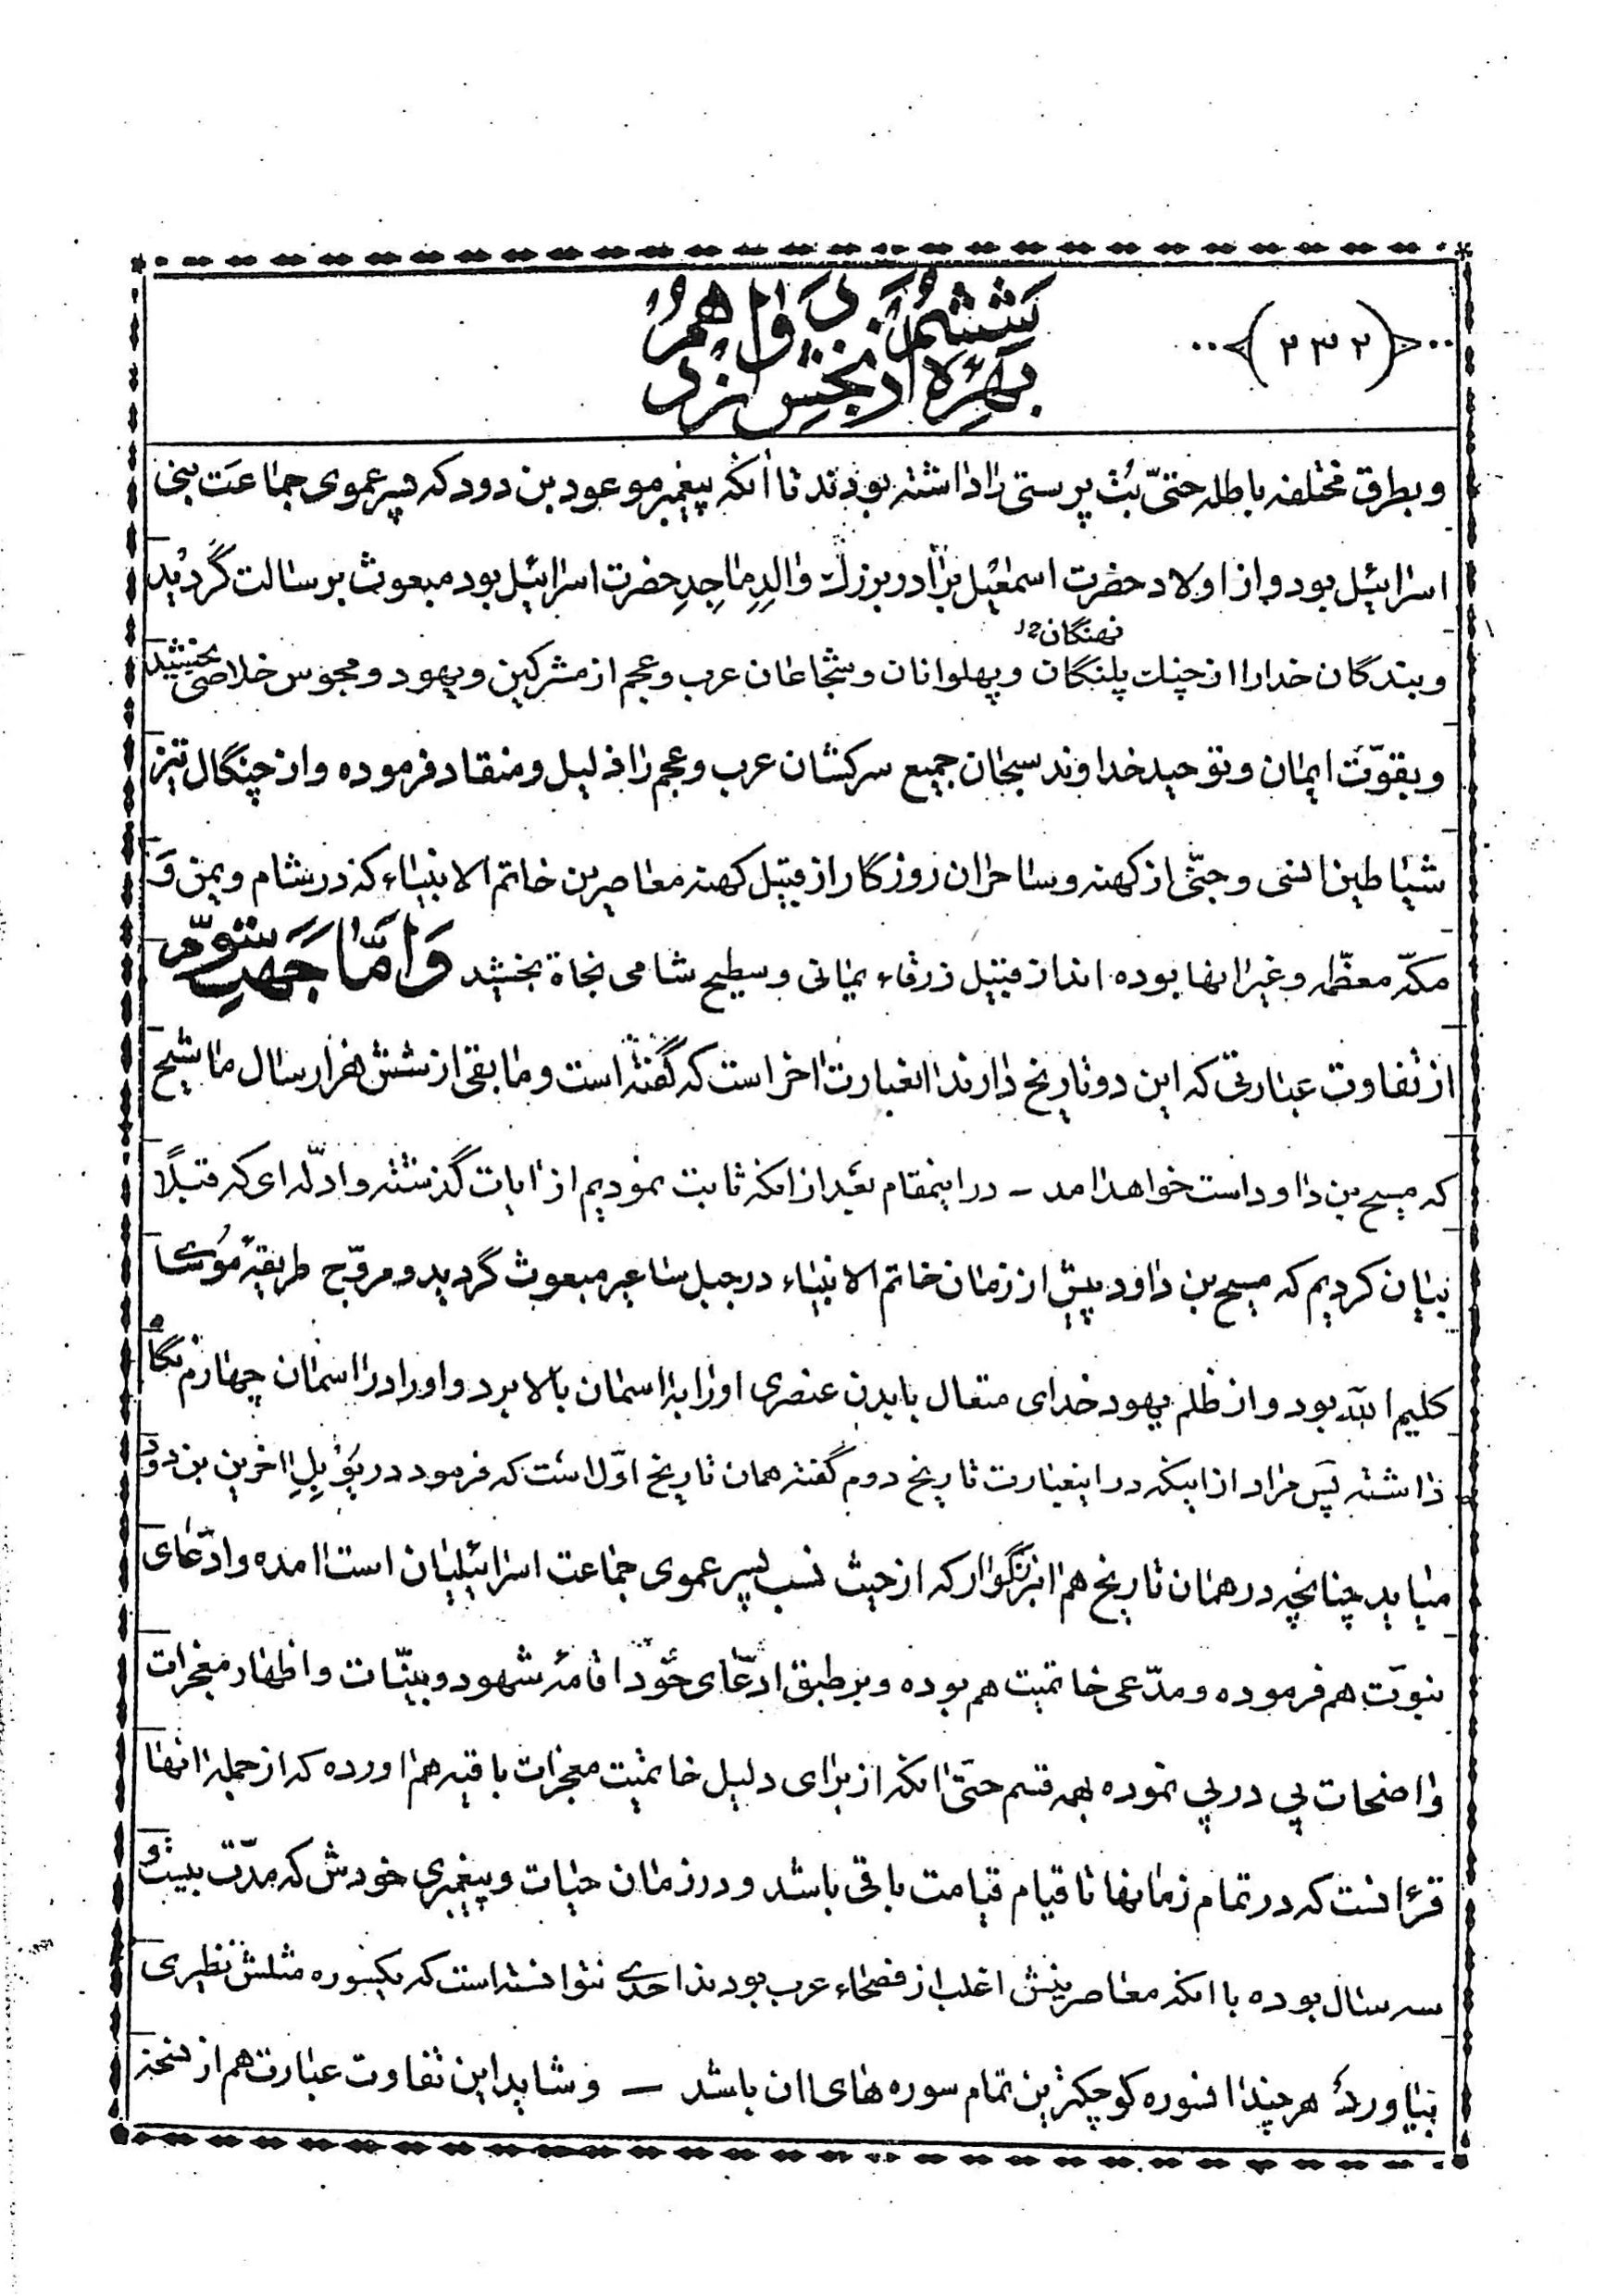 (۲۳۲)
بهره ششم از بخش
وبطرق مختلفه باطله حتّی بُت پرستی را داشته بودند تا آنکه پیغمبر موعود بن دود که پسر عموی جماعَت بنی
اسرائیل بود و از اولاد حضرت اسمعیل برادر بزرك والِدِ ماجِدِ حضرت اسرائیل بود مبعوث برسالت گردید
نهنگان
وبندگان خدا را از چنك پلنگان وپهلوانان وشجاعان عرب وعجم از مشرکین ویهود ومجوس خلاصی بخشید
وبقوّت ایمان وتوحید خداوند سبحان جمیع سرکشان عرب وعجم را ذلیل ومنقاد فرموده واز چنگال تیز
شیاطین انسی وجنّی از کهنه وساحران روزگار از قبیل کهنه معاصرین خاتم الانبیاء که در شام ویمن وَ
مکّه معظّمه وغیر انها بوده اند از قبیل زرقاء یمانی وسطیح شامی نجاة بخشید وَامّا جَهَتِ سوّم
از تفاوت عبارتی که این دو تاریخ دارند انعبارت اخر است که گفته است وما بقی از شش هزار سال ماشیح
که مسیح بن داود است خواهد امد – در اینمقام بعَد از انکه ثابت نمودیم از ایات گذشته وادلّه ای که قبلًا
بیان کردیم که مسیح بن داود پیش از زمان خاتم الانبیاء در جبل ساعیر مبعوث گردید ومروّج طریقهٔ موُسٰی
کلیم الله بود واز ظلم یهود خدای متعال با بدن عنصری او را به اسمان بالا برد واورا در اسمان چهارم نگاه
داشته پَس مراد از اینکه در اینعبارت تاریخ دوم گفته همان تاریخ اوّل است که فرمود در یوُبِلِ اخرین بن دود
میاید چنانچه در همان تاریخ هم انبزرگوار که از حیث نسب پسر عموی جماعت اسرائیلیان است امده وادّعای
نبوّت هم فرموده ومدّعی خاتمیت هم بوده وبر طبق ادّعای خود اقامهٔ شهود وبیّنات واظهار معجزات
واضحات پی در پی نموده بهمه قسم حتّی انکه از برای دلیل خاتمیت معجزات باقیه هم اورده که از جمله انها
قرءانست که در تمام زمانها تا قیام قیامت باقی باشد ودر زمان حیات وپیغمبری خودش که مدّت بیست و
سه سال بوده با انکه معاصرینش اغلب از فصحاء عرب بودند احدی نتوانسته است که یکسوره مثلش نظیری
بیاورد هر چند انسوره کوچکترین تمام سوره های ان باشد – وشاید این تفاوت عبارت هم از نسخه